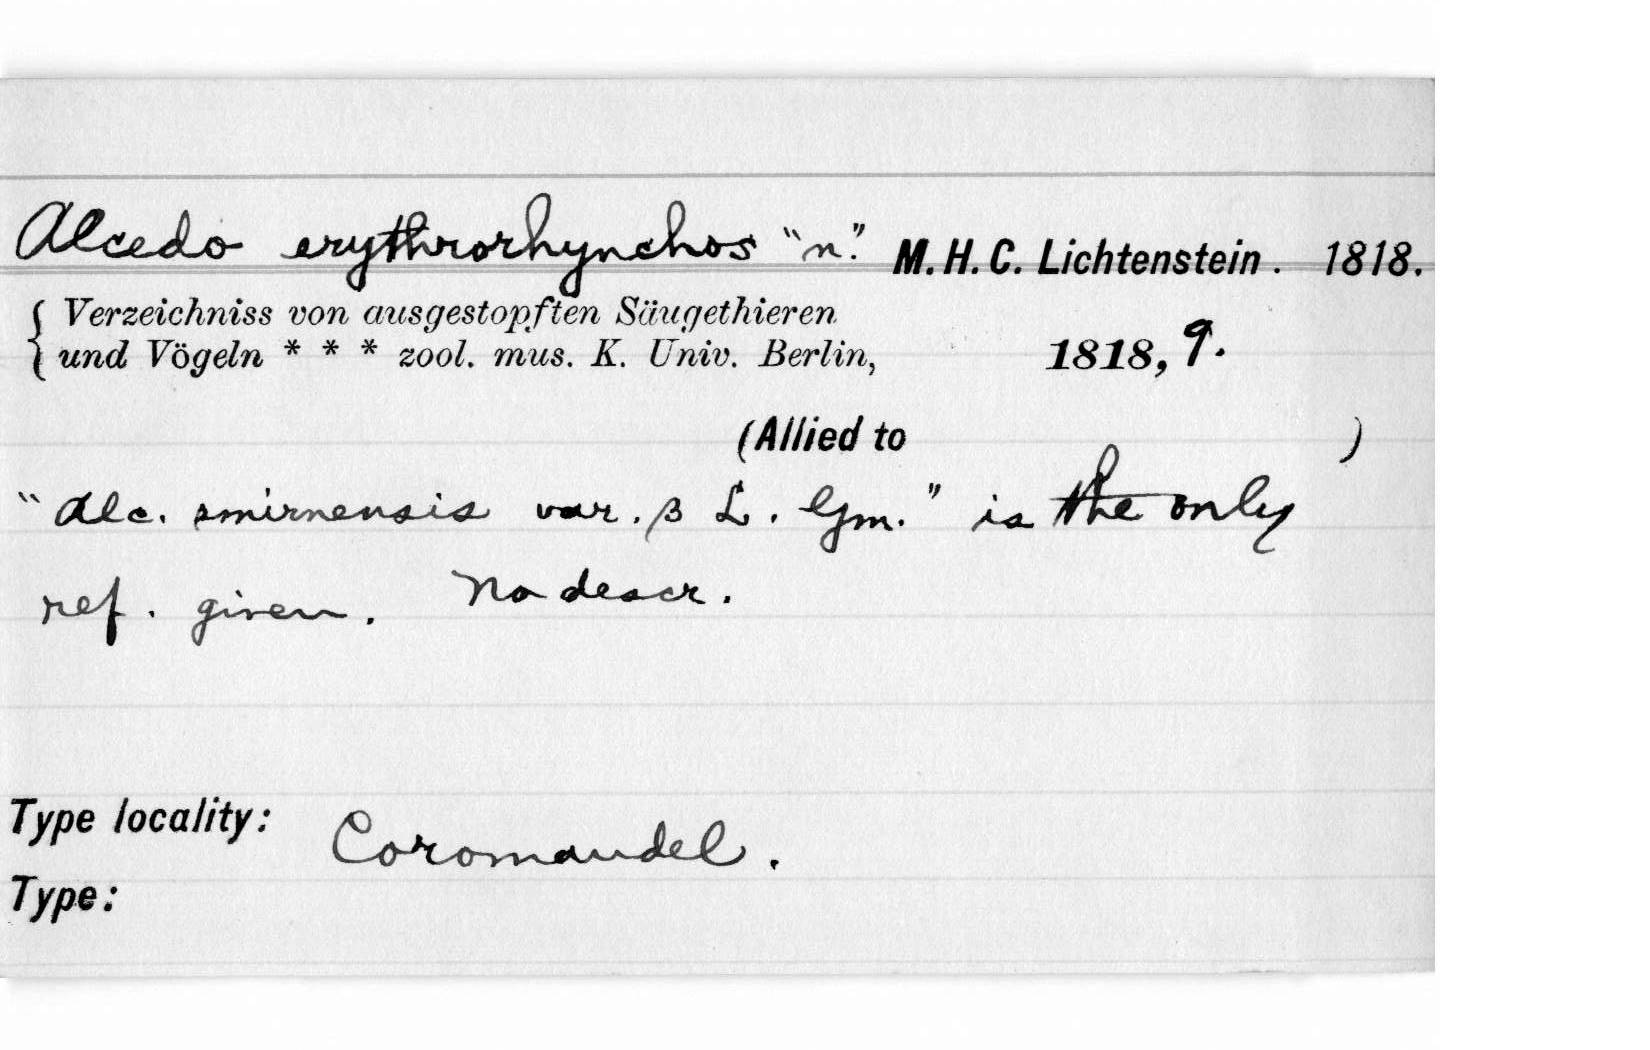 Alcedo erythrorhynchos "n." M. H. C. Lichtenstein. 1818.
{ Verzeichniss von ausgestopften Säugethieren
{ und Vögeln * * * zool. mus. K. Univ. Berlin, 1818, 9.
(Allied to )
"Alc. smirnensis var. β L. Gm." is the only
ref. given. No descr.
Type locality: Coromandel.
Type: